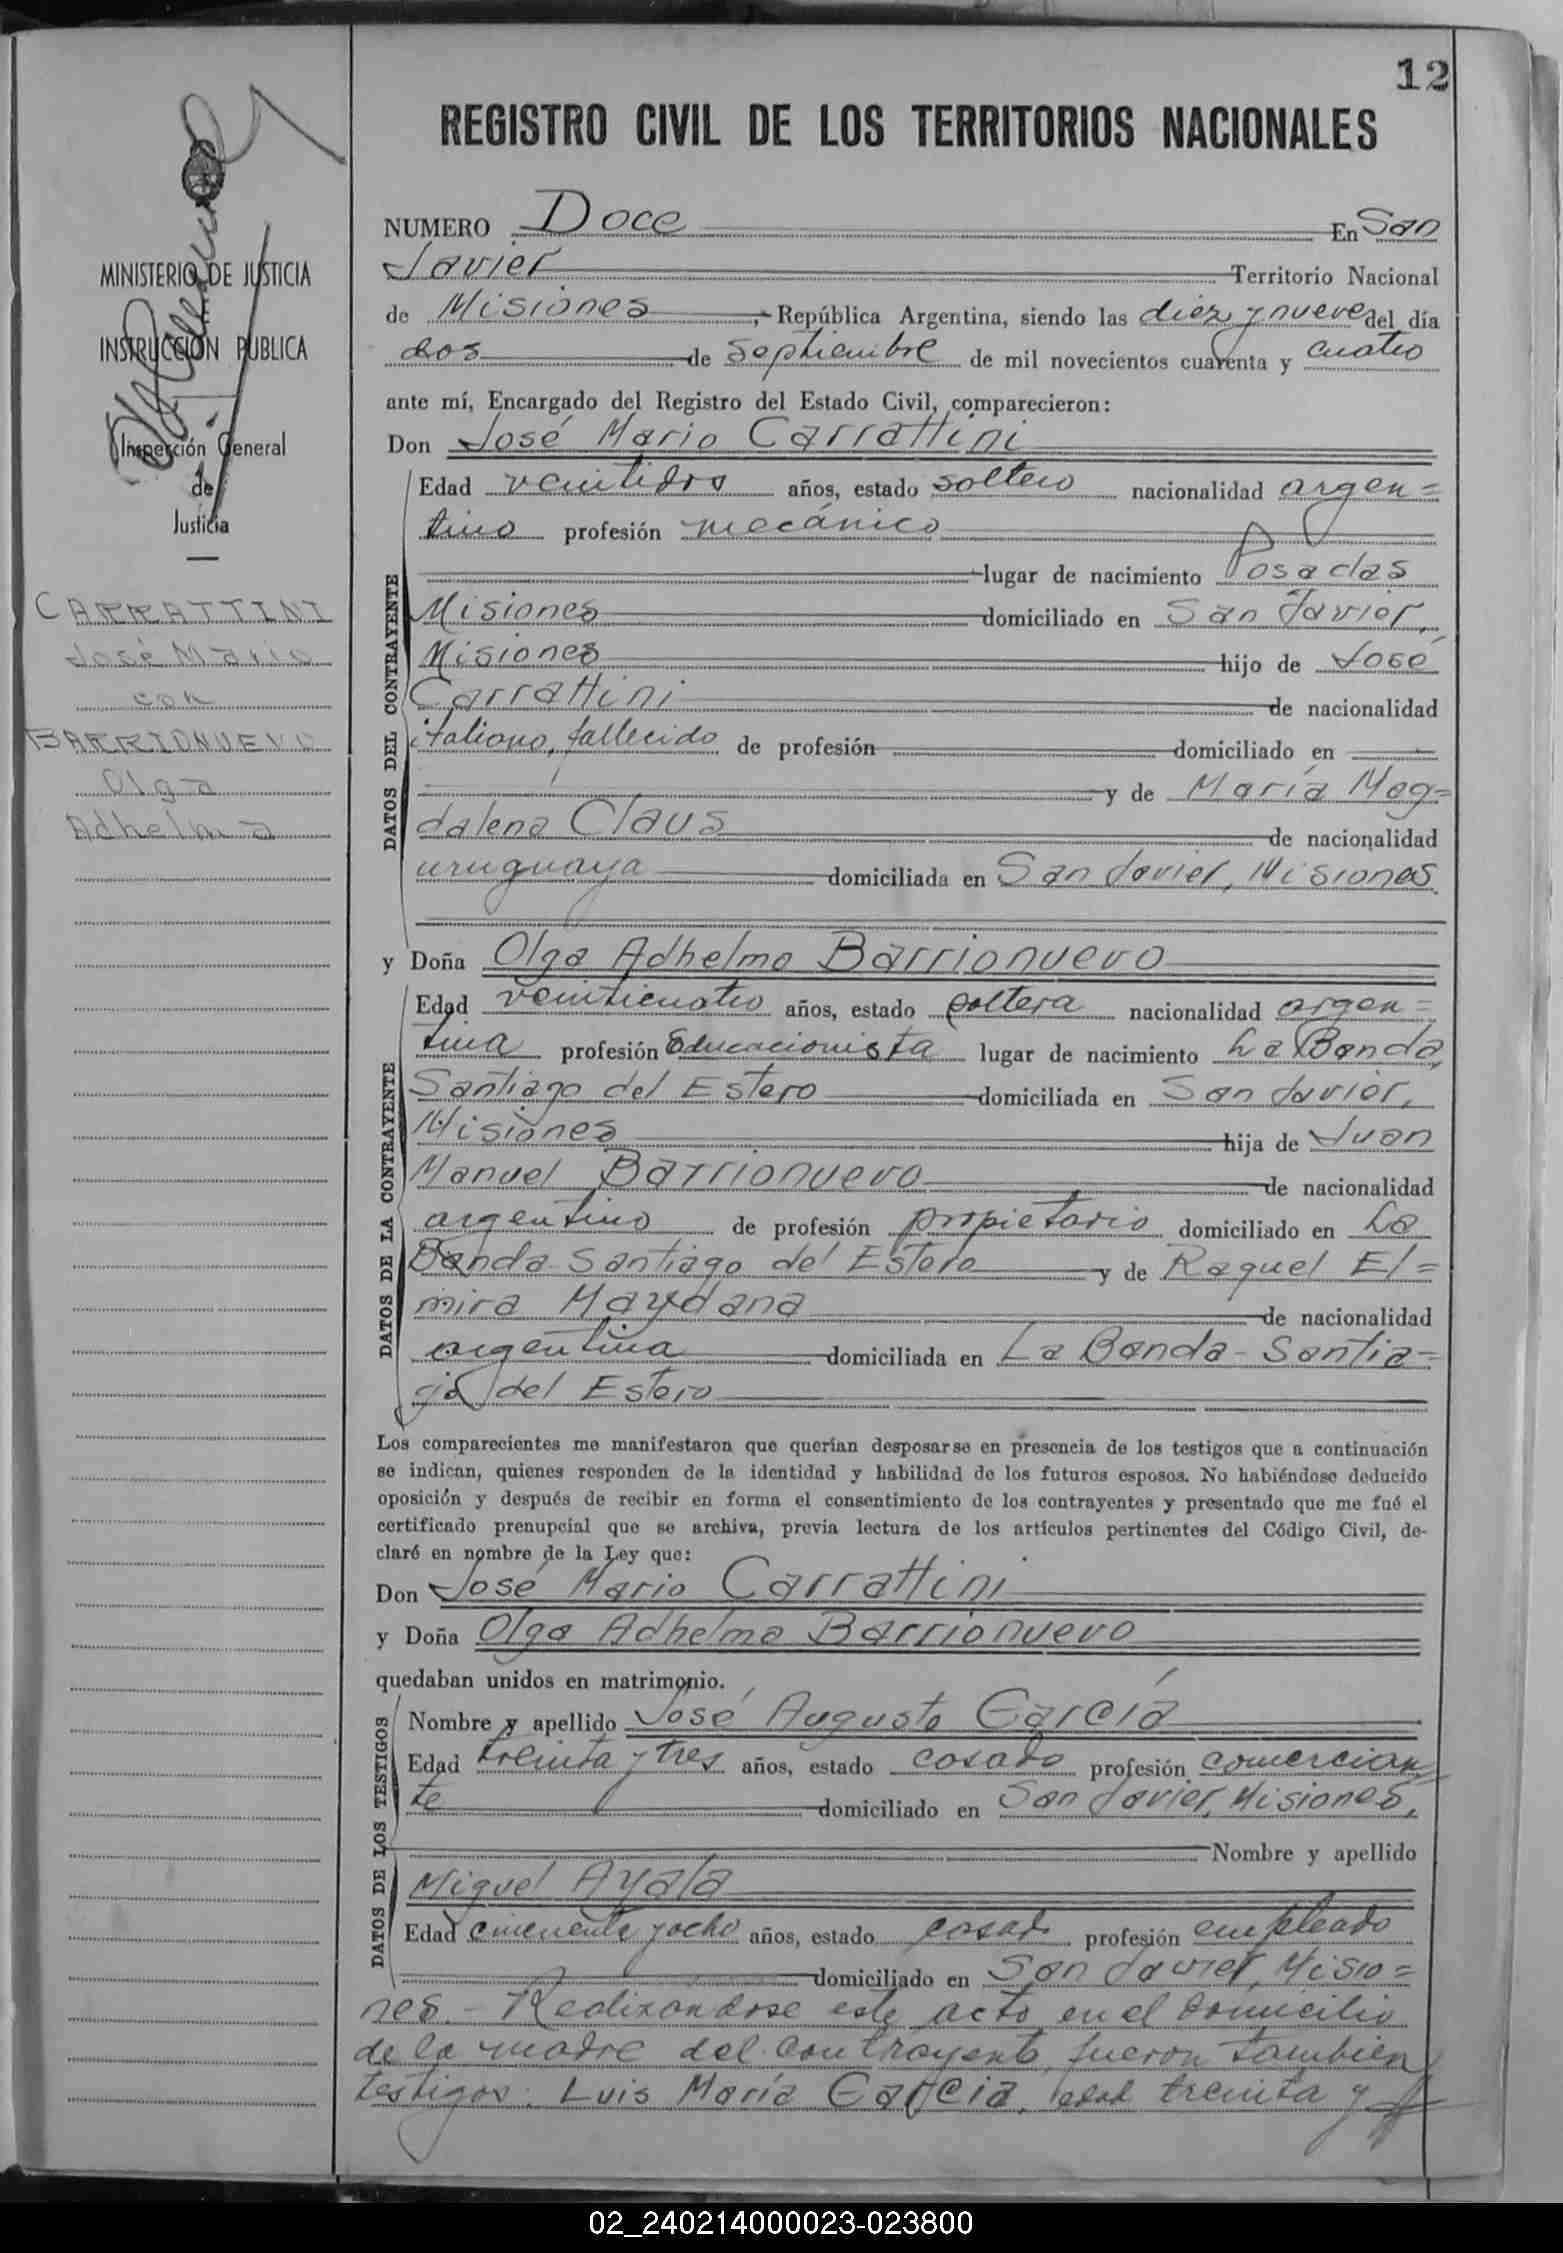 12
REGISTRO CIVIL DE LOS TERRITORIOS NACIONALES
MINISTERIO DE JUSTICIA
INSTRUCCIÓN PUBLICA
Inspección General
de
Justicia
CARRATTINI
José Mario
con
BARRIONUEVO
Olga
Adhelma
NUMERO Doce En San
Javier Territorio Nacional
de Misiones, República Argentina, siendo las diez y nueve del día
dos de Septiembre de mil novecientos cuarenta y cuatro
ante mí, Encargado del Registro del Estado Civil, comparecieron:
Don José Mario Carrattini
DATOS DEL CONTRAYENTE
Edad veintidos años, estado soltero nacionalidad argen=
tino profesión mecánico
lugar de nacimiento Posadas
Misiones domiciliado en San Javier,
Misiones hijo de José
Carrattini de nacionalidad
italiano, fallecido de profesión domiciliado en
y de María Mag=
dalena Claus de nacionalidad
uruguaya domiciliada en San Javier, Misiones
y Doña Olga Adhelma Barrionuevo
DATOS DE LA CONTRAYENTE
Edad veinticuatro años, estado soltera nacionalidad argen=
tina profesión Educacionista lugar de nacimiento La Banda,
Santiago del Estero domiciliada en San Javier,
Misiones hija de Juan
Manuel Barrionuevo de nacionalidad
argentino de profesión propietario domiciliado en La
Banda-Santiago del Estero y de Raquel El=
mira Maydana de nacionalidad
argentina domiciliada en La Banda-Santia=
go del Estero
Los comparecientes me manifestaron que querían desposarse en presencia de los testigos que a continuación
se indican, quienes responden de la identidad y habilidad de los futuros esposos. No habiéndose deducido
oposición y después de recibir en forma el consentimiento de los contrayentes y presentado que me fué el
certificado prenupcial que se archiva, previa lectura de los artículos pertinentes del Código Civil, de-
claré en nombre de la Ley que:
Don José Mario Carrattini
y Doña Olga Adhelma Barrionuevo
quedaban unidos en matrimonio.
DATOS DE LOS TESTIGOS
Nombre y apellido José Augusto García
Edad treinta y tres años, estado casado profesión comercian
te domiciliado en San Javier, Misiones,
Nombre y apellido
Miguel Ayala
Edad cincuenta y ocho años, estado casado profesión empleado
domiciliado en San Javier, Misio=
nes.- Realizandose este acto en el domicilio
de la madre del contrayente, fueron tambien
testigos: Luis María García, edad treinta y
02_240214000023-023800